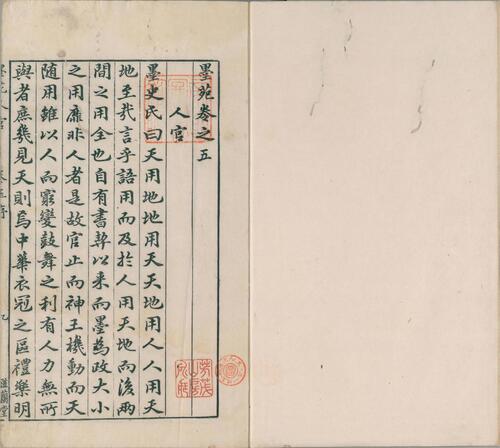 墨苑卷之五
人官
墨史氏曰天用地地用天天地用人人用天
地至哉言乎語用而及於人用天地而後兩
間之用全也自有書契以來而墨爲政大小
之用靡非人者是故官止而神王機動而天
隨用雖以人而窮變鼓舞之利有人力無所
與者庶幾見天則焉中華衣冠之區禮樂明
滋蘭堂